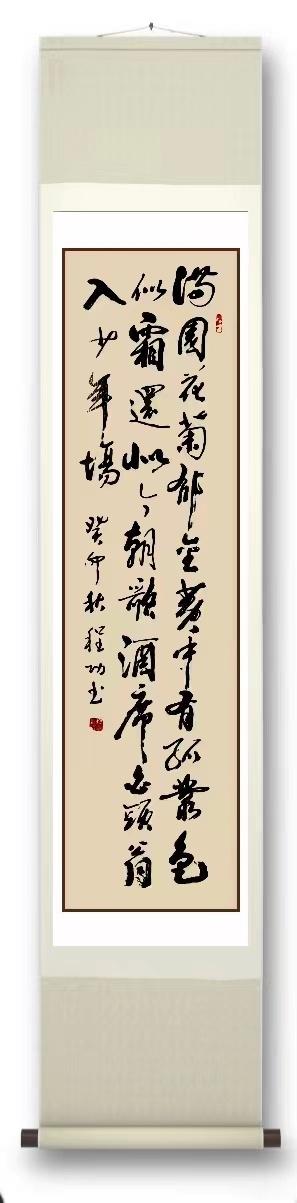 満園花菊郁金黄中有孤叢色
似霜還似今朝歌酒席白頭翁
入少年場 癸卯秋程功书